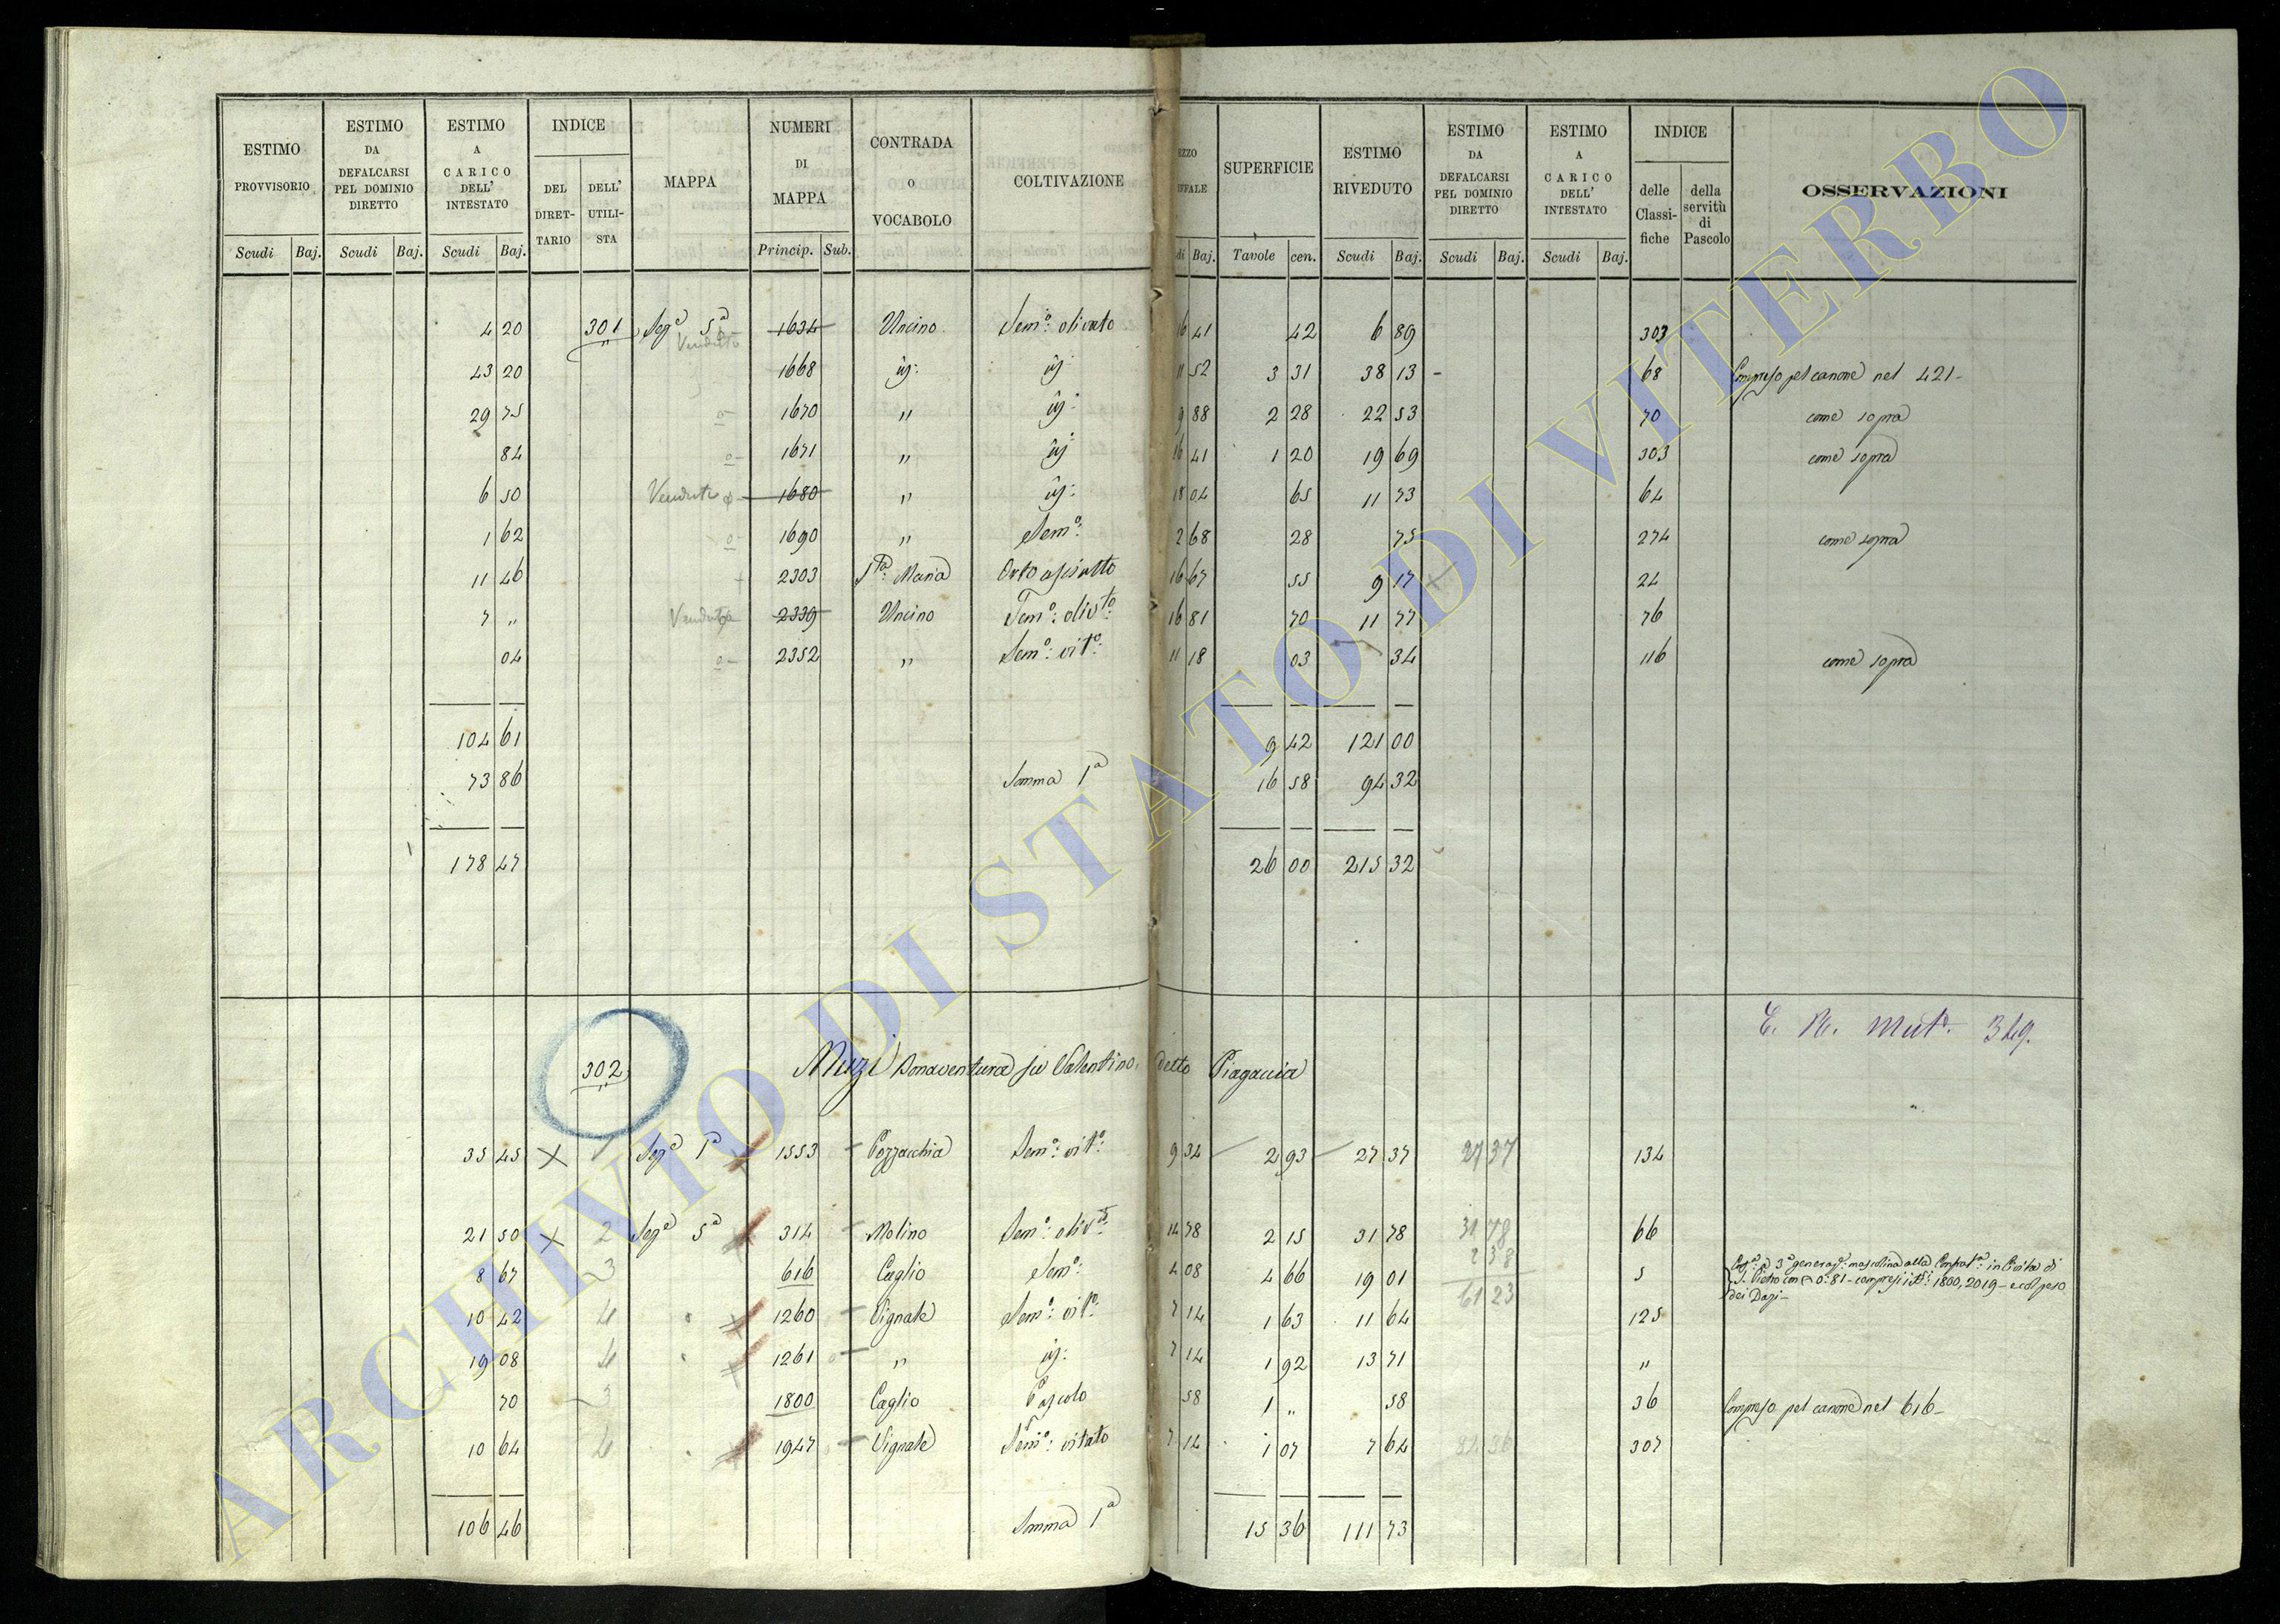 ESTIMO PROVVISORIO | ESTIMO DA DEFALCARSI PEL DOMINIO DIRETTO | ESTIMO A CARICO DELL' INTESTATO | INDICE | MAPPA | NUMERI DI MAPPA | CONTRADA O VOCABOLO | COLTIVAZIONE | EZZO | SUPERFICIE | ESTIMO RIVEDUTO | ESTIMO DA DEFALCARSI PEL DOMINIO DIRETTO | ESTIMO A CARICO DELL' INTESTATO | INDICE | OSSERVAZIONI
DEL DIRET-TARIO | DELL' UTILI-STA | delle Classi-fiche | della servitù di Pascolo
Scudi | Baj. | Scudi | Baj. | Scudi | Baj. | Princip. | Sub. | di | Baj. | Tavole | cen. | Scudi | Baj. | Scudi | Baj. | Scudi | Baj.
4 20 301 Sez.e 5a Venduto 1634 Uncino Sem.o: olivato 16 41 42 6 89 303
43 20 1668 3 31 38 13 - 68 Compreso pel canone nel 421-
29 75 1670 " 9 88 2 28 22 53 70 come sopra
84 1671 " 16 41 1 20 19 69 303 come sopra
6 50 Venduto 1680 " 18 04 65 11 73 64
1 62 1690 " Sem.o: 2 68 28 75 274 come sopra
11 46 2303 S.ta: Maria Orto asciutto 16 67 55 9 17 24
7 " Venduto 2339 Uncino Sem.o: oliv.to 16 81 70 11 77 76
04 2352 " Sem.o: vit.o: 11 18 03 34 116 come sopra
104 61 9 42 121 00
73 86 Somma 1a 16 58 94 32
178 47 26 00 215 32
E. R. Mut.e 349.
302 Muzi Bonaventura fu Valentino, detto Piagaccia
35 45 X 1 Sez.e 1a 1553 Pozzacchia Sem.o: vit.o: 9 34 2 93 27 37 27 37 134
21 50 X 2 Sez.e 5a 314 Molino Sem.o: oliv.to: 14 78 2 15 31 78 31 78 66
2 58
8 67 3 616 Caglio Sem.o: 4 08 4 66 19 01 5
a 3a generaz.e mascolina alla in Civita di
S. Pietro con 0:81 - compresi 1800, 2019 - e col peso
dei Dazi -
61 23
10 42 4 1260 Vignale Sem.o: vit.o: 7 14 1 63 11 64 125
19 08 4 1261 " 7 14 1 92 13 71 "
70 3 1800 Caglio Pascolo 58 1 " 58 36 Compreso pel canone nel 616-
10 64 4 1947 Vignale Sem.o: vitato 7 14 1 07 7 64 307
106 46 Somma 1a 15 36 111 73
ARCHIVIO DI STATO DI VITERBO